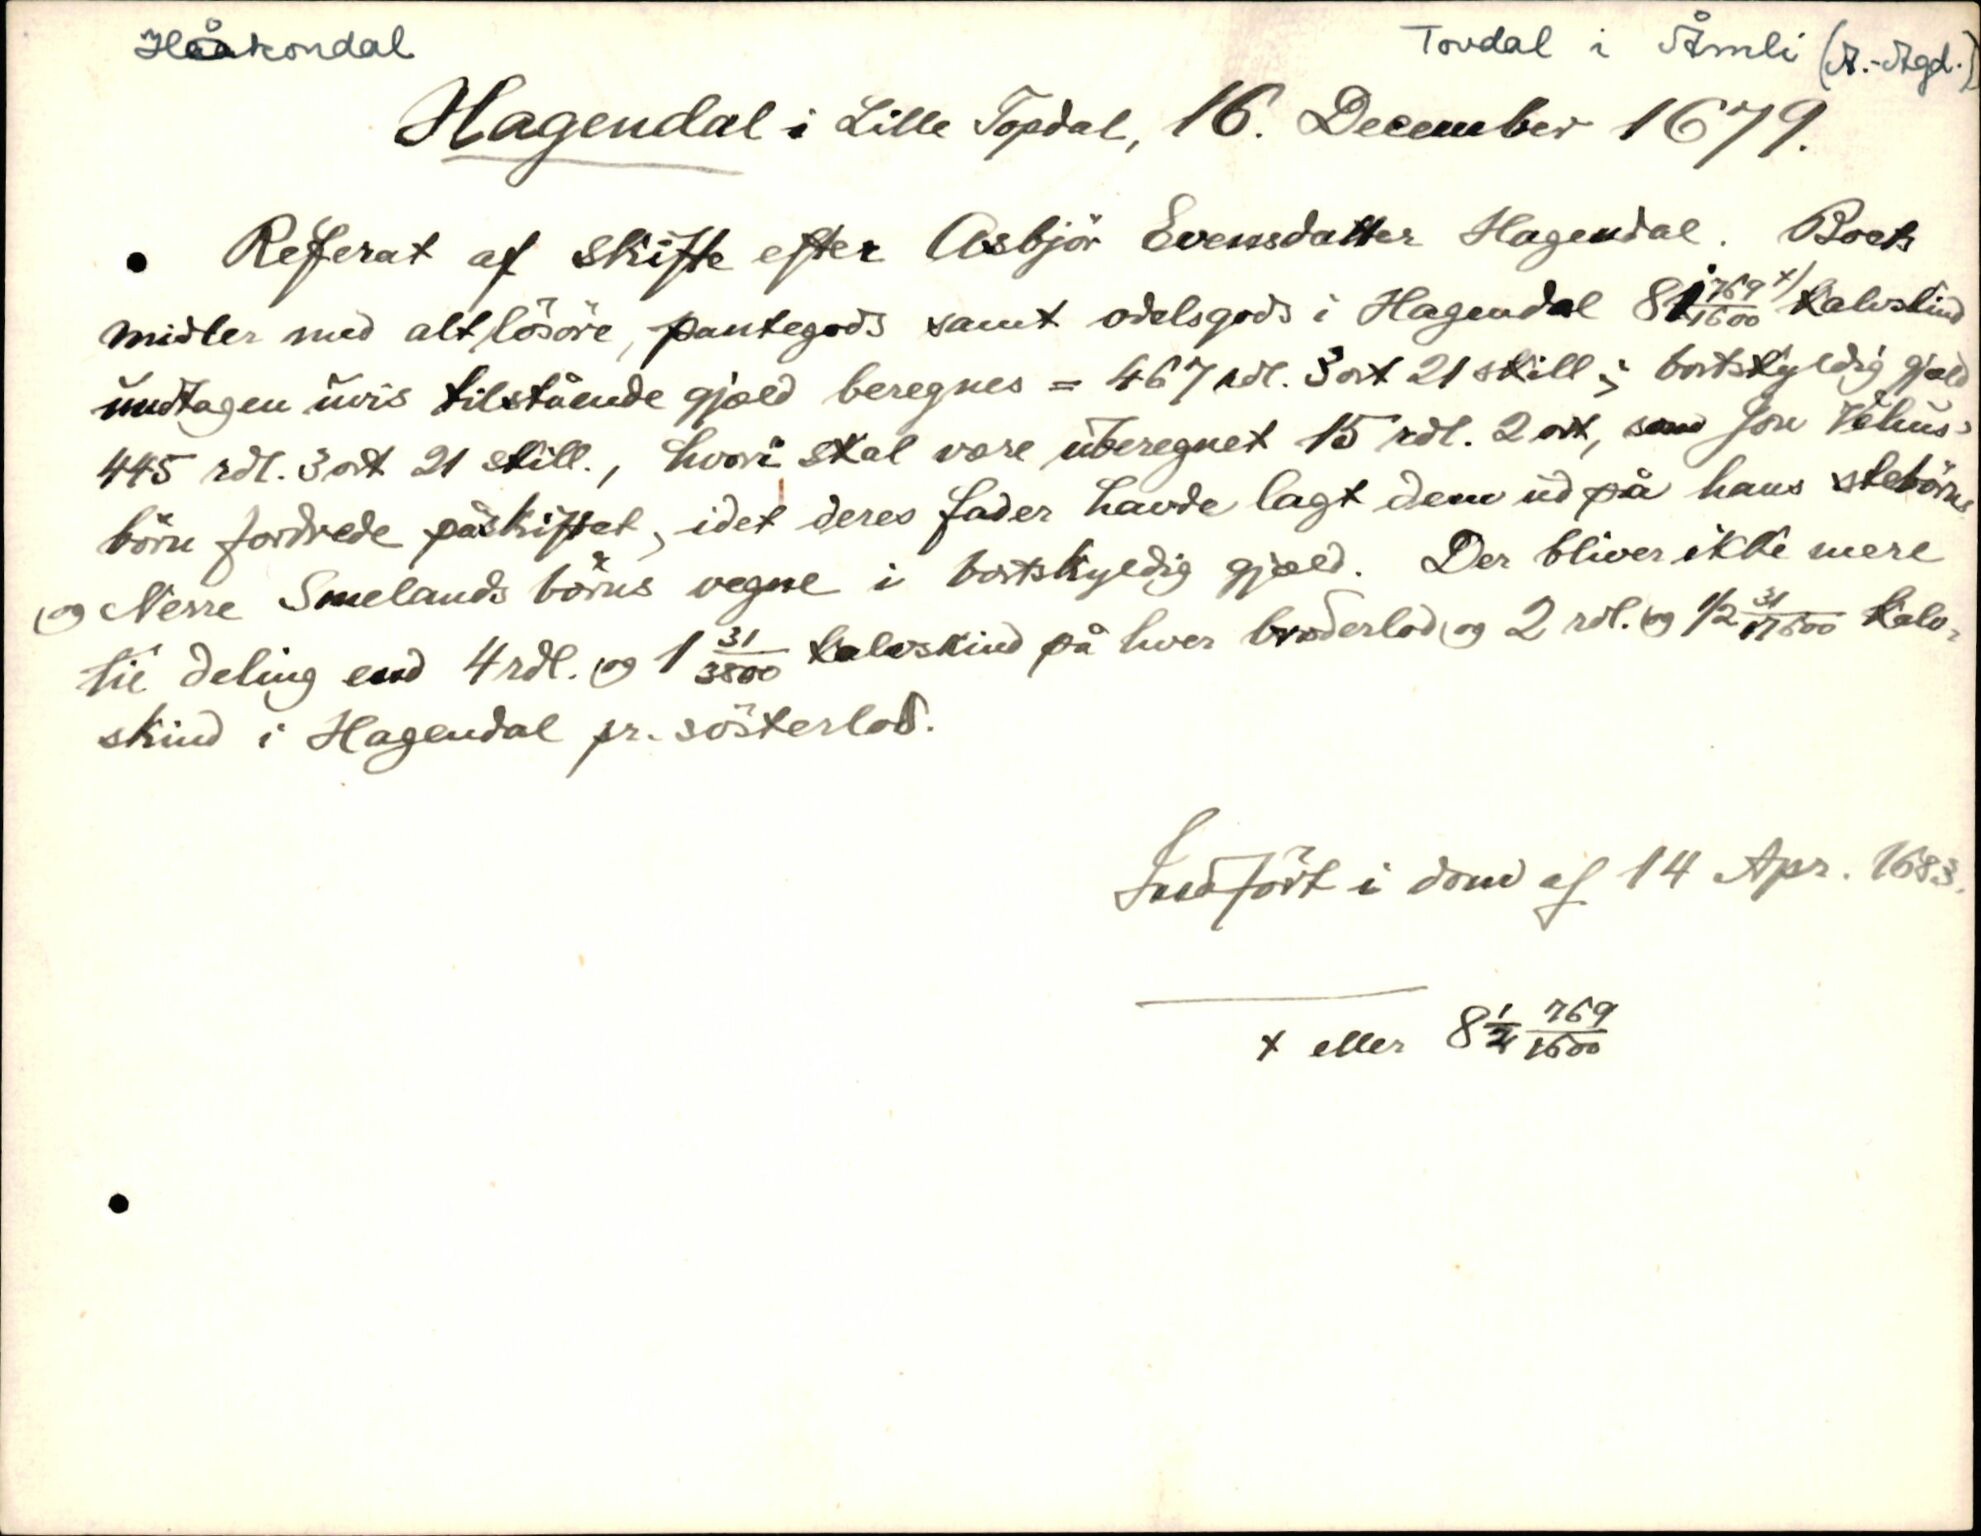 Håkondal
Tovdal i Åmli (A.-Agd.)
Hagendal i Lille Topdal, 16. December 1679.
Referat af skifte efter Asbjör Evensdatter Hagendal. Boets
midler med alt lösöre, pantegods samt odelsgods i Hagendal 8 769/1600 x) kalvskind
undtagen uvis tilstående gjæld beregnes = 467 rdl. 3 ort 21 skill; bortskyldig gjæld
445 rdl. 3 ort 21 skill., hvori skal være uberegnet 15 rdl. 2 ort, som Jon Vehus's
börn fordrede på skiftet, idet deres fader havde lagt dem ud på hans stebörns
og Nerre Smelands börns vegne i bortskyldig gjæld. Der bliver ikke mere
til deling end 4 rdl. og 1 31/3800 kalvskind på hver broderlod og 2 rdl. og 1/2 31/17600 kalv-
skind i Hagendal pr. sösterlod.
Indfört i dom af 14 Apr. 1683.
x eller 8 1/2 769/1600